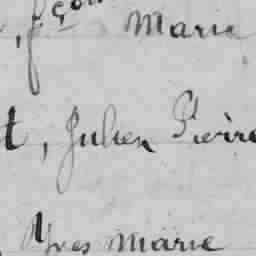 , fçois Marie
t, Julien Pierre
, Yves Marie